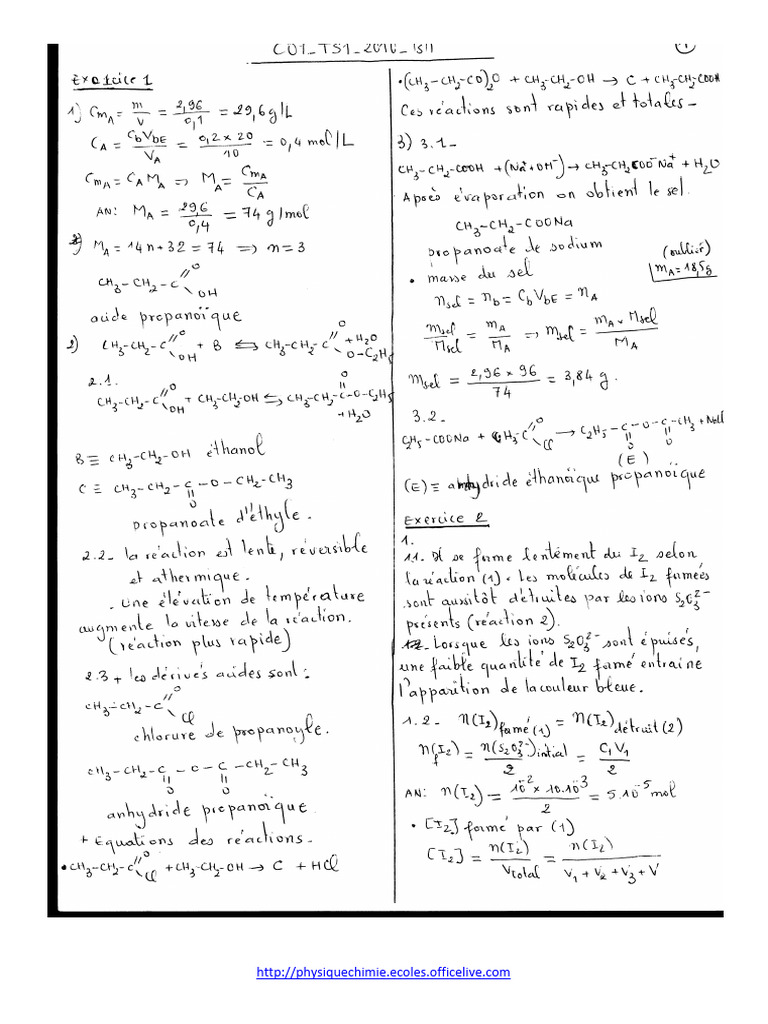 C01_TS1_2010_
1
Exercice 1
1) CmA = m/V = 2,96/0,1 = 29,6 g/L
CA = CbVbE/VA = 0,2 × 20/10 = 0,4 mol/L
CmA = CA MA => MA = CmA/CA
AN: MA = 29,6/0,4 = 74 g/mol
MA = 14n + 32 = 74 => n = 3
CH3-CH2-C=O OH
acide propanoïque
2) CH3-CH2-C=O OH + B ⇌ CH3-CH2-C=O O-C2H5 + H2O
2.1.
CH3-CH2-C=O OH + CH3-CH2-OH ⇌ CH3-CH2-C=O -O-C2H5 + H2O
B ≡ CH3-CH2-OH éthanol
C ≡ CH3-CH2-C-O-CH2-CH3
O
propanoate d'éthyle.
2.2- la réaction est lente, réversible
et athermique.
- Une élévation de température
augmente la vitesse de la réaction.
(réaction plus rapide)
2.3 + les dérivés acides sont:
CH3-CH2-C=O Cl
chlorure de propanoyle.
CH3-CH2-C-O-C-CH2-CH3
O O
anhydride propanoïque
+ Equations des réactions-
• CH3-CH2-C=O Cl + CH3-CH2-OH → C + HCl
• (CH3-CH2-CO)2O + CH3-CH2-OH → C + CH3-CH2-COOH
Ces réactions sont rapides et totales-
3) 3.1-
CH3-CH2-COOH + (Na+ + OH-) → CH3-CH2-COO-Na+ + H2O
Après évaporation on obtient le sel.
CH3-CH2-COONa
propanoate de sodium
(oublier)
mA = 18,5g
• masse du sel
nsel = nb = CbVbE = nA
msel/Msel = mA/MA => msel = mA × Msel/MA
Msel = 2,96 × 96/74 = 3,84 g.
3.2-
C2H5-COONa + CH3-C=O Cl → C2H5-C-O-C-CH3 + NaCl
O O
(E)
(E) ≡ anhydride éthanoïque propanoïque
Exercice 2
1.
1.1. Il se forme lentement du I2 selon
la réaction (1). Les molécules de I2 formées
sont aussitôt détruites par les ions S2O3^2-
présents (réaction 2).
- Lorsque les ions S2O3^2- sont épuisés,
une faible quantité de I2 formé entraine
l'apparition de la couleur bleue.
1.2- n(I2)formé(1) = n(I2)détruit(2)
n(I2)f = n(S2O3^2-)initial/2 = C1V1/2
AN: n(I2) = 10^-2 × 10.10^-3/2 = 5.10^-5 mol
• [I2] formé par (1)
[I2] = n(I2)/Vtotal = n(I2)/V1 + V2 + V3 + V
http://physiquechimie.ecoles.officelive.com